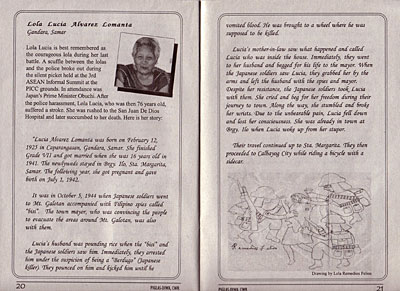 Lola Lucia Alvarez Lomanta
Gandara, Samar
Lola Lucia is best remembered as
the courageous lola during her last
battle. A scuffle between the lolas
and the police broke out during
the silent picket held at the 3rd
ASEAN Informal Summit at the
PICC grounds. In attendance was
Japan's Prime Minister Obuchi. After
the police harassment, Lola Lucia, who was then 76 years old,
suffered a stroke. She was rushed to the San Juan De Dios
Hospital and later succumbed to her death. Here is her story:
"Lucia Alvarez Lomanta was born on February 12,
1925 in Caparangasan, Gandara, Samar. She finished
Grade VII and got married when she was 16 years old in
1941. The newlyweds stayed in Brgy. Ilo, Sta. Margarita,
Samar. The following year, she got pregnant and gave
birth on July 1, 1942.
It was in October 5, 1944 when Japanese soldiers went
to Mt. Galotan accompanied with Filipino spies called
"bisi". The town mayor, who was convincing the people
to evacuate the areas around Mt. Galotan, was also
with them.
Lucia's husband was pounding rice when the "bisi" and
the Japanese soldiers saw him. Immediately, they arrested
him under the suspicion of being a "Berdugo" (Japanese
killer). They pounced on him and kicked him until he
20
PIGLAS-DIWA, CWR
vomited blood. He was brought to a wheel where he was
supposed to be killed.
Lucia's mother-in-law saw what happened and called
Lucia who was inside the house. Immediately, they went
to her husband and begged for his life to the mayor. When
the Japanese soldiers saw Lucia, they grabbed her by the
arms and left the husband with the spies and mayor.
Despite her resistance, the Japanese soldiers took Lucia
with them. She cried and beg for her freedom during their
journey to town. Along the way, she stumbled and broke
her wrists. Due to the unbearable pain, Lucia fell down
and lost her consciousness. She was already in town at
Brgy. Ilo when Lucia woke up from her stupor.
Their travel continued up to Sta. Margarita. They then
proceeded to Calbayog City while riding a bicycle with a
sidecar.
Drawing by Lola Remedios Felias
PIGLAS-DIWA, CWR
21